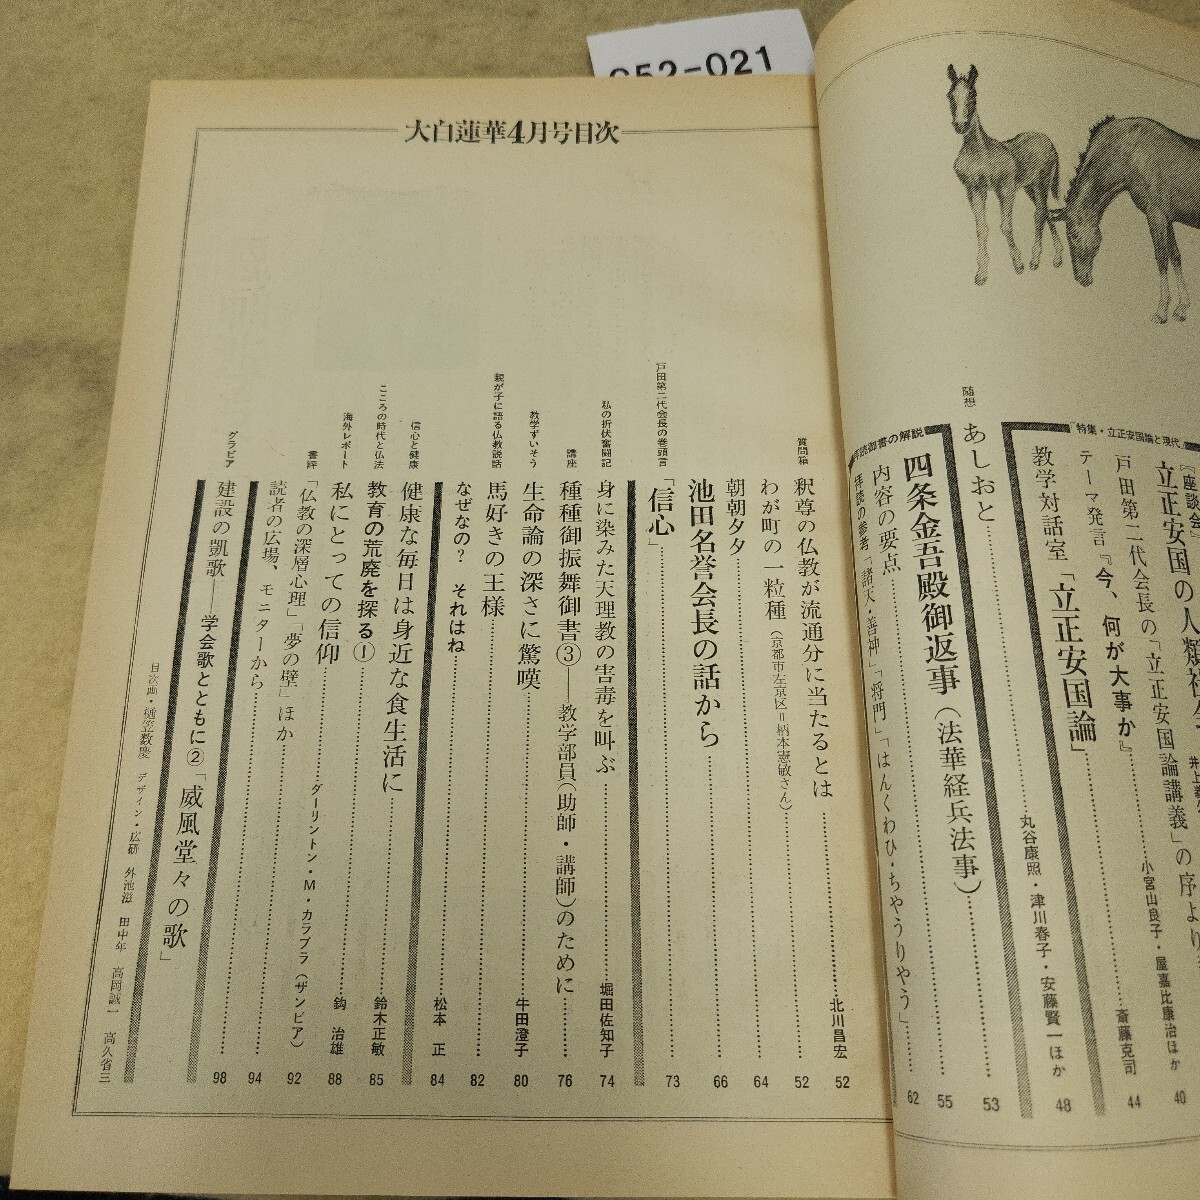 C52-021
大白蓮華4月号目次
特集・立正安国論と現代
〔座談会〕
立正安国の人間
40
戸田第二代会長の「立正安国論講義」の序より
テーマ発言『今、何が大事か』
小宮山良子・屋嘉比康治ほか
斎藤克司
44
教学対話室「立正安国論」
丸谷康照・津川春子・安藤賢一ほか
48
随想
あしおと
53
拝読御書の解説
四条金吾殿御返事（法華経兵法事）
55
内容の要点
62
拝読の参考「諸天・善神」「将門」「はんくわひ・ちやうりやう」
質問箱
釈尊の仏教が流通分に当たるとは
北川昌宏
52
わが町の一粒種（京都市左京区=柄本憲敏さん）
52
朝朝夕夕
64
池田名誉会長の話から
66
戸田第二代会長の巻頭言
「信心」
73
私の折伏奮闘記
身に染みた天理教の害毒を叫ぶ
堀田佐知子
74
講座
種種御振舞御書③――教学部員（助師・講師）のために
76
教学ずいそう
生命論の深さに驚嘆
牛田澄子
80
親が子に語る仏教説話
馬好きの王様
82
なぜなの？　それはね
松本　正
84
信心と健康
健康な毎日は身近な食生活に
こころの時代と仏法
教育の荒廃を探る①
鈴木正敏
85
海外レポート
私にとっての信仰
鈎　治雄
88
ダーリントン・M・カラブラ（ザンビア）
書評
「仏教の深層心理」「夢の壁」ほか
92
読者の広場、モニターから
94
グラビア
建設の凱歌――学会歌とともに②「威風堂々の歌」
98
目次画・樋笠数慶　デザイン・広研　外池滋　田中年　高岡誠一　高久省三